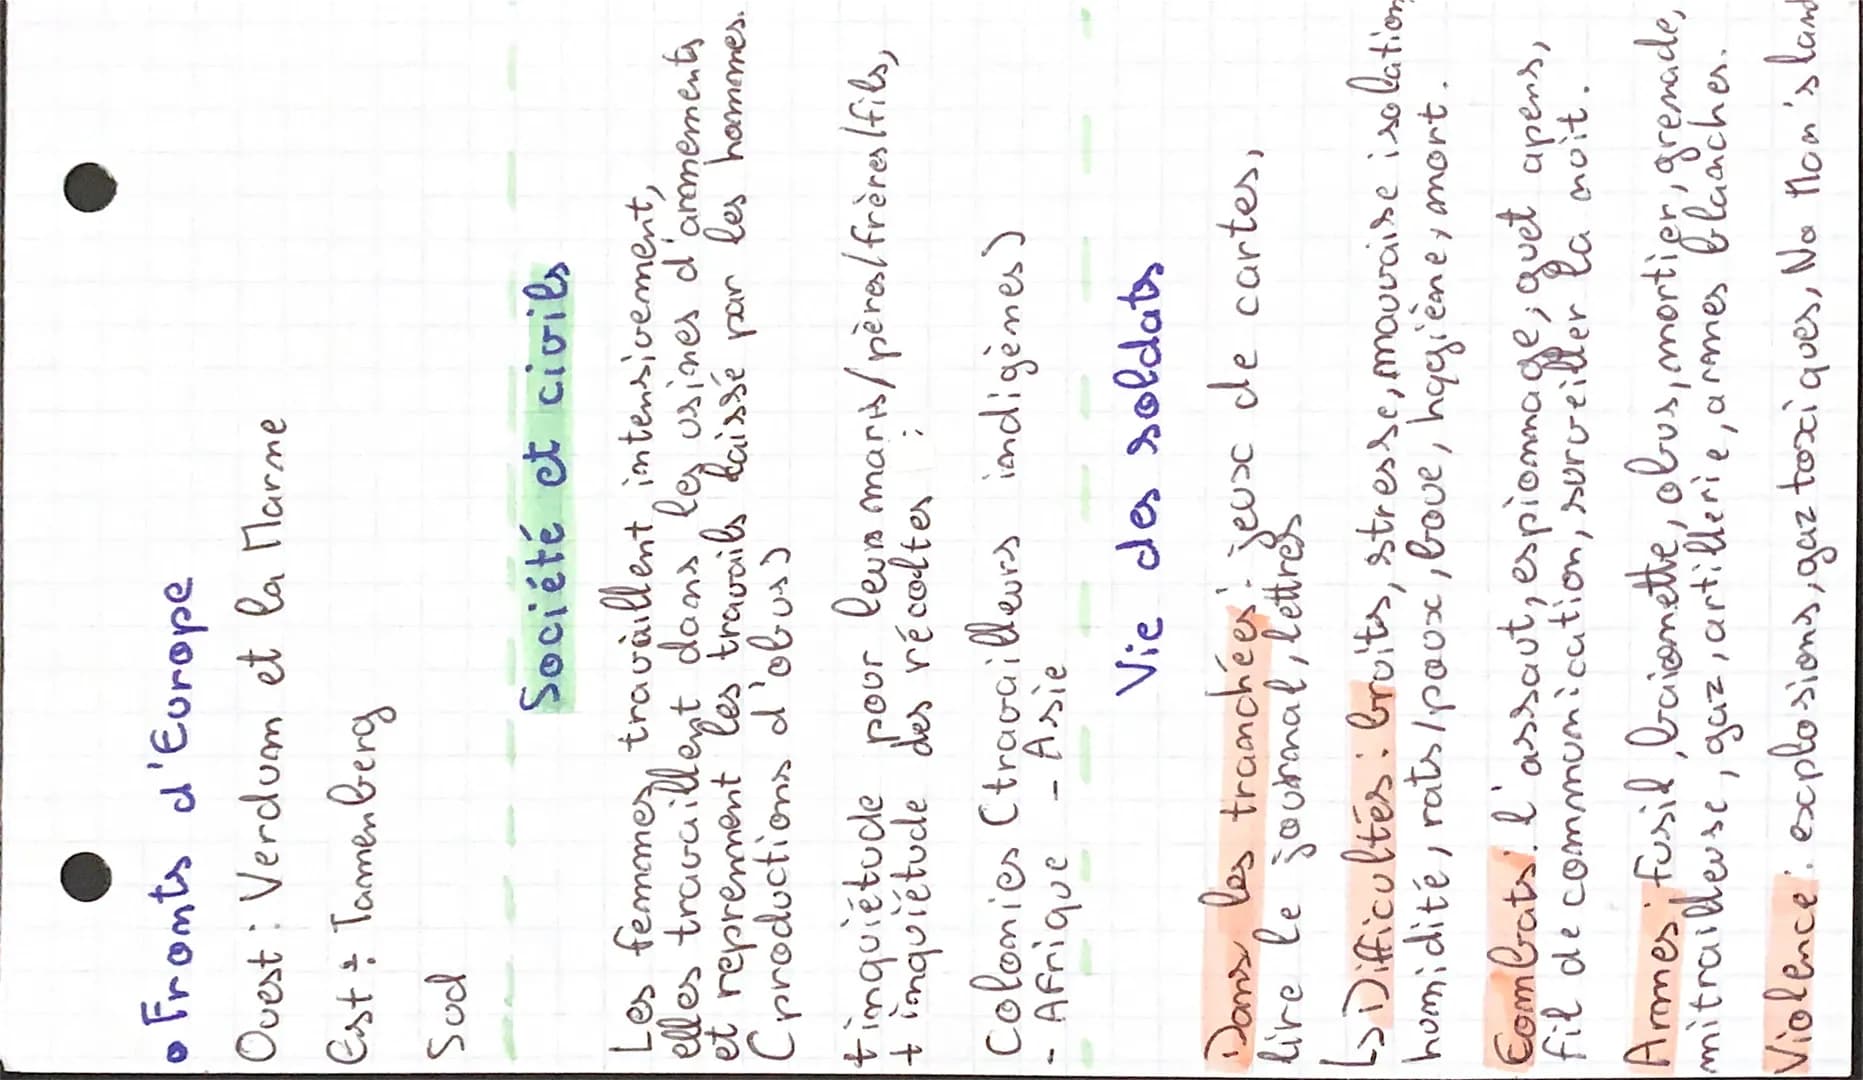 • Fronts d'Europe
Ouest : Verdum et la Marne
Est : Tamenberg
Sud
Société et civils
Les femmes travaillent intensivement,
elles travaillent dans les usines d'armements
et reprennent les travails laissé par les hommes.
(productions d'obus)
+ inquiétude pour leurs maris/pères/frères/fils,
+ inquiétude des récoltes :
Colonies (travailleurs indigènes)
- Afrique - Asie
Vie des soldats
Dans les tranchées : jeux de cartes,
lire le journal, lettres
↳ Difficultés : bruits, stress, mauvaise isolation
humidité, rats/poux, boue, hygiène, mort.
Combats : l'assaut, espionnage, guet apens,
fil de communication, surveiller la nuit.
Armes : fusil, baionnette, obus, mortier, grenade,
mitrailleuse, gaz, artillerie, armes blanches.
Violence : explosions, gaz toxiques, No Man's land